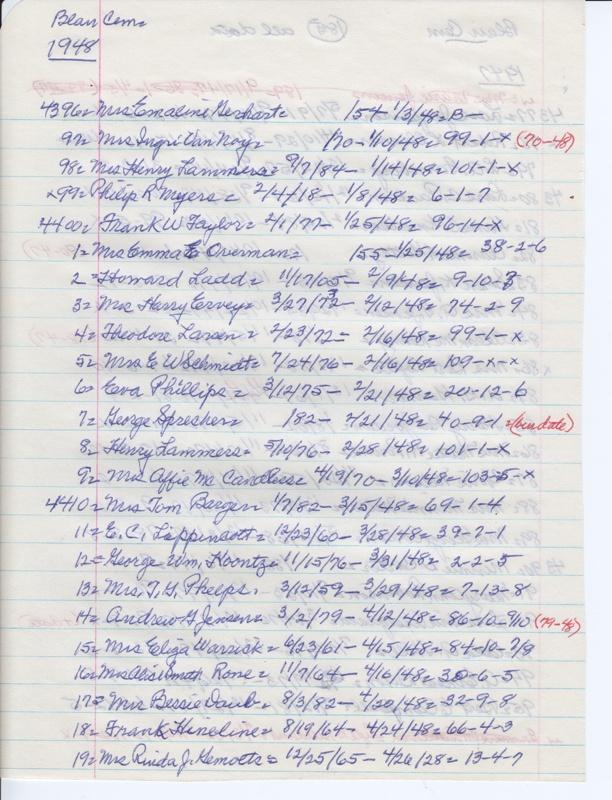 Blair Cem=
1948
4396= Mrs Emaline Gerhart= 154- 1/3/48= B-
97= Mrs Ingri Van Noy= 170- 1/10/48= 99-1-x (70-48)
98= Mrs Henry Lammers= 9/7/84- 1/14/48= 101-1-x
x99= Philip R Myers= 2/4/18- 1/8/48= 6-1-7
4400= Frank W Taylor= 2/1/77- 1/25/48= 96-14-x
1= Mrs Emma E Overman= 155- 1/25/48= 38-2-6
2= Howard Ladd= 11/17/05- 2/9/48= 9-10-3
3= Mrs Harry Ervey= 3/27/73- 2/12/48= 74-2-9
4= Theodore Larsen= 2/23/72- 2/16/48= 99-1-x
5= Mrs E W Schmidt= 7/24/76- 2/16/48= 109-x-x
6= Eva Phillips= 3/12/75- 2/21/48= 20-12-6
7= George Spreshen= 182- 2/21/48= 40-9-1= (bur date)
8= Henry Lammers= 5/10/76- 2/28/48= 101-1-x
9= Mrs Affie Mc Candless= 4/19/70- 3/10/48= 103-5-x
4410= Mrs Tom Barger= 1/7/82- 3/15/48= 69-1-4
11= E. C. Lippincott= 12/23/60- 3/28/48= 39-7-1
12= George Wm. Koontz= 11/15/76- 3/31/48= 2-2-5
13= Mrs. T. G. Phelps. 3/12/59- 3/29/48= 7-13-8
14= Andrew G Jensen= 3/2/79- 4/12/48= 86-10-9/10 (79-48)
15= Mrs Eliza Warrick= 6/23/61- 4/15/48= 84-10-7/9
16= Mrs Alice Smith Rone= 11/7/64- 4/16/48= 30-6-5
17= Mrs Bessie Daub= 8/3/82- 4/20/48= 32-9-8
18= Frank Hineline= 8/19/64- 4/24/48= 66-4-3
19= Mrs Rinda J. Kemotts= 12/25/65- 4/26/28= 13-4-7